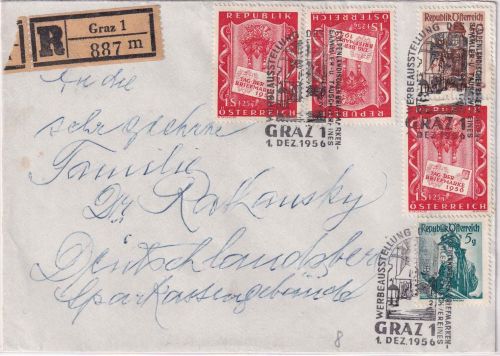 R
Graz 1
887 m
An die
sehr geehrte
Familie
Dr. Ratkansky
Deutschlandsberg
Sparkassengebäude
REPUBLIK
TAG DER
BRIEFMARKE
1956
1S+25g
ÖSTERREICH
REPUBLIK
TAG DER
BRIEFMARKE
1956
1S+25g
ÖSTERREICH
Republik Österreich
TAG DER
BRIEFMARKE
1956
1S+25g
ÖSTERREICH
Republik Österreich
5g
WERBEAUSSTELLUNG
GRAZ 1
1. DEZ. 1956
WERBEAUSSTELLUNG
GRAZ 1
1. DEZ. 1956
WERBEAUSSTELLUNG
GRAZ 1
1. DEZ. 1956
8